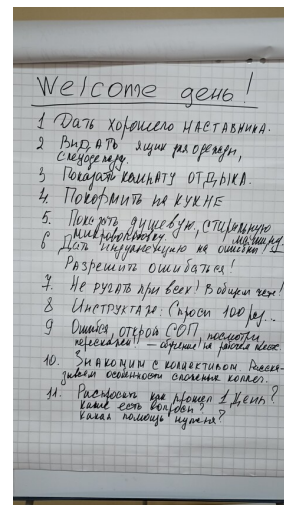 Welcome день!
1 Дать хорошего наставника.
2 Выдать ящик для одежды,
спецодежду.
3 Показать комнату отдыха.
4. Покормить на кухне
5. Показать душевую, стиральную
микроволновку, машину.
6 Дать индульгенцию на ошибки!
Разрешить ошибаться!
7. Не ругать при всех! В общем чате!
8 Инструктаж: Спроси 100 раз...
9 Ошибся, открой СОП, посмотри,
перескажи — обучение на рабочем месте.
10. Знакомим с коллективом. Расска-
зываем особенности сложных коллег.
11. Распросить как прошёл 1 день?
какие есть вопросы?
какая помощь нужна?